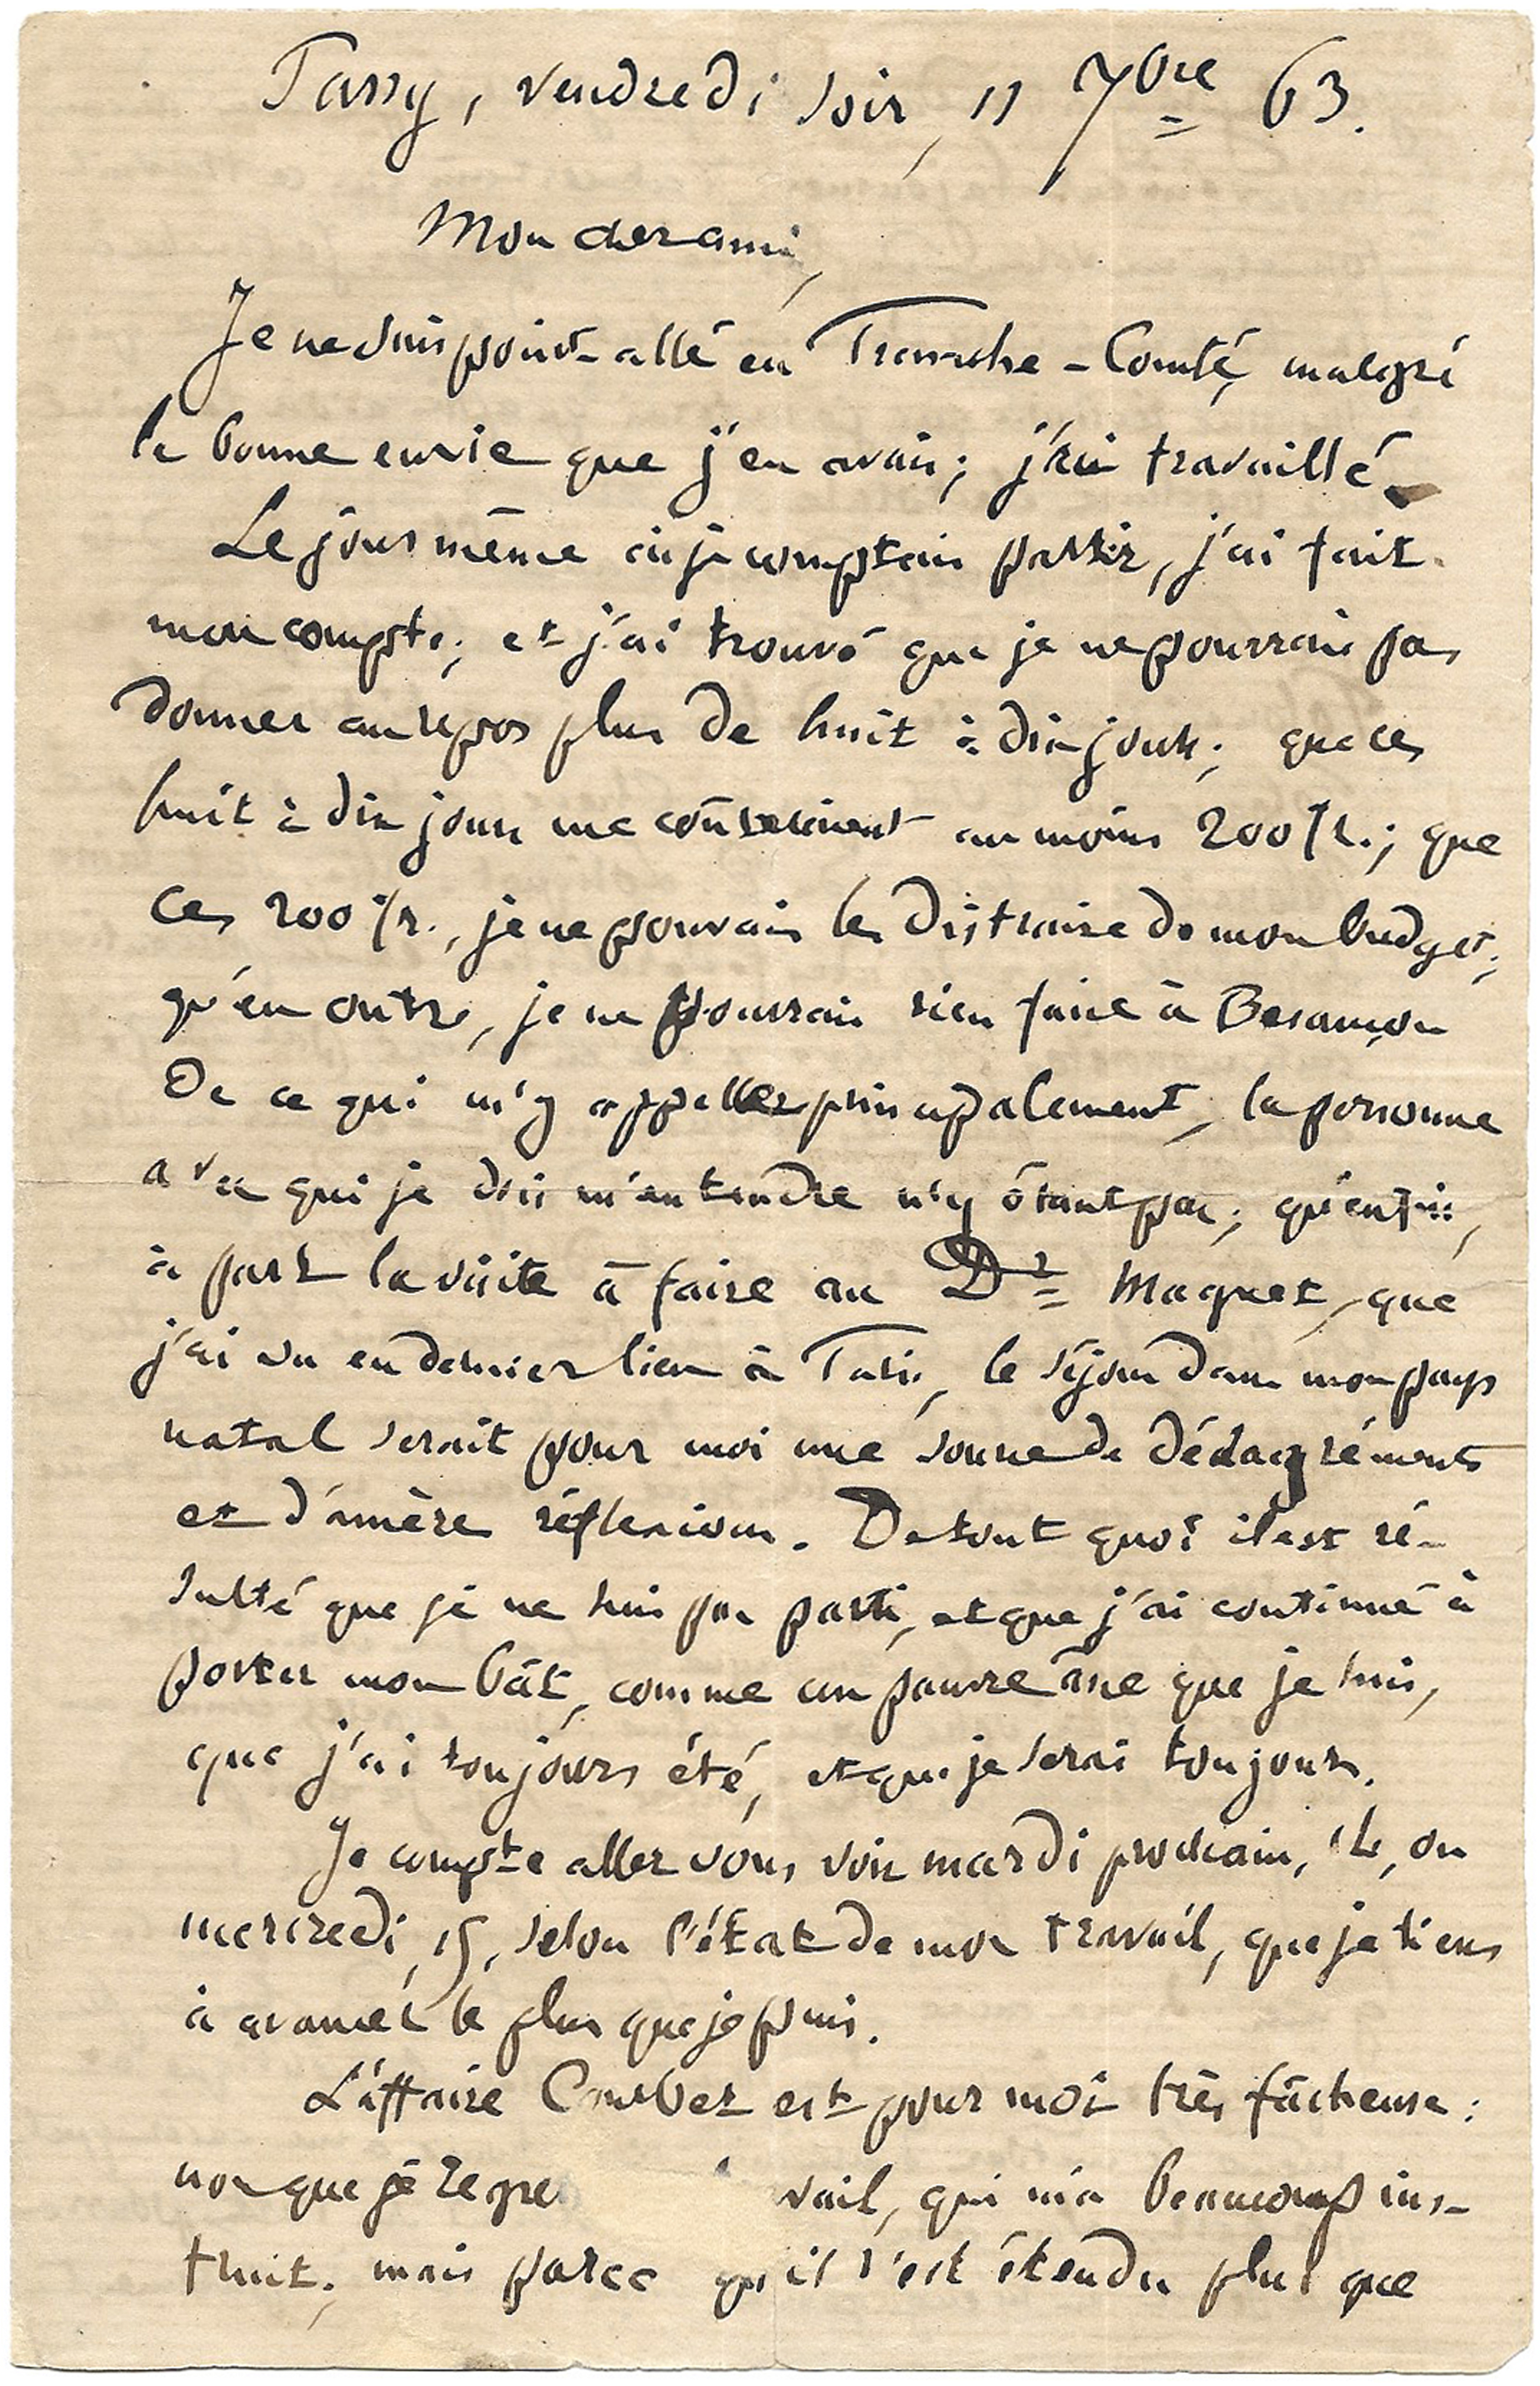 Passy, vendredi soir, 11 7bre 63.
Mon cher ami,
Je ne suis point allé en Franche-Comté, malgré
la bonne envie que j'en avais ; j'ai travaillé.
Le jour même où je comptais partir, j'ai fait
mon compte ; et j'ai trouvé que je ne pourrais pas
donner au repos plus de huit à dix jours ; que ces
huit à dix jours me coûteraient au moins 200 fr. ; que
ces 200 fr., je ne pouvais les distraire de mon budget ;
qu'en outre, je ne pourrais rien faire à Besançon
de ce qui m'y appelle principalement, la personne
avec qui je dois m'entendre n'y étant pas ; qu'enfin,
à part la visite à faire au Dr Maguet, que
j'ai vu en dernier lieu à Paris, le séjour dans mon pays
natal serait pour moi une source de désagréments
et d'amère réflexions. De tout quoi il est ré-
sulté que je ne suis pas parti, et que j'ai continué à
porter mon bât, comme un pauvre âne que je suis,
que j'ai toujours été, et que je serai toujours.
Je compte aller vous voir mardi prochain, 15, ou
mercredi, 16, selon l'état de mon travail, que je tiens
à avancer le plus que je puis.
L'affaire Courbet est pour moi très fâcheuse :
non que je regre vail, qui m'a beaucoup ins-
truit ; mais parce qu'il s'est étendu plus que